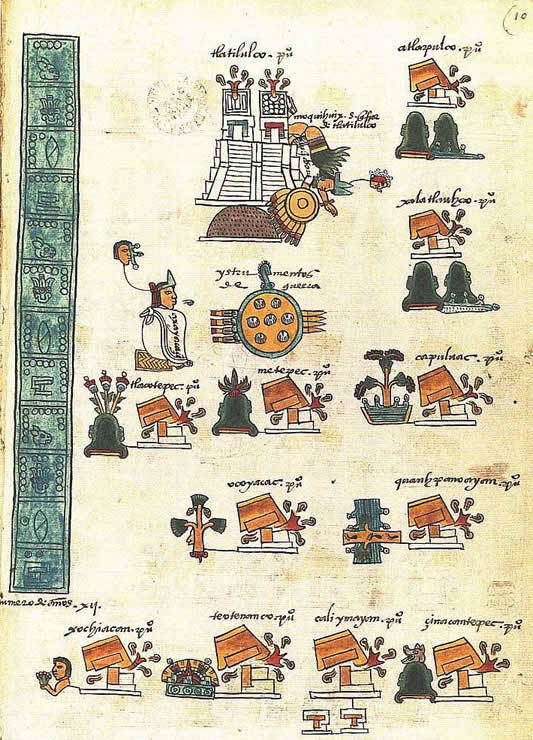 10
tlatilulco . pũ
atlapulco . pũ
moquihuix . señor
de tlatilulco
xalatlauhco . pũ
ystrumentos
de guerra
capuluac . pũ
metepec . pũ
tlacotepec . pũ
ocoyacac . pũ
quauhpanoayan . pũ
numero de años . xij
xochiacan . pũ
teotenanco . pũ
caliymayan . pũ
çinacantepec . pũ